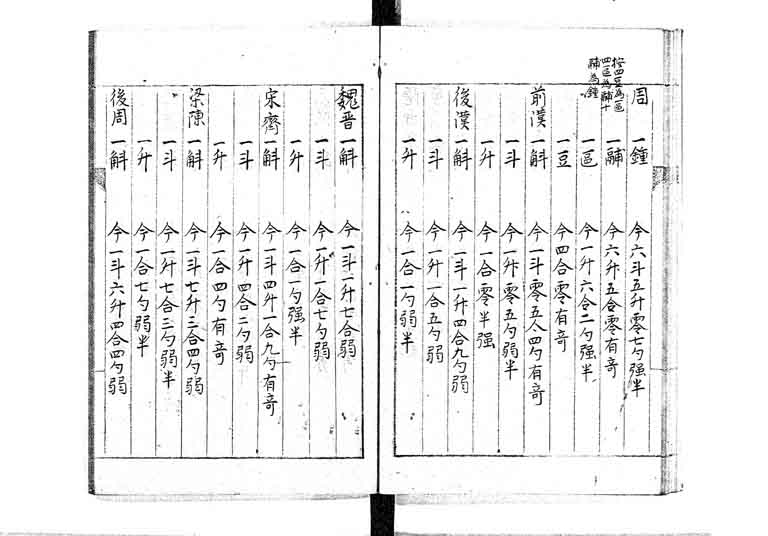 按四豆為區
四區為䤗十
䤗為鍾
周 一鍾 今六斗五升零七勺强半
一䤗 今六升五合零有奇
一區 今一升六合二勺强半
一豆 今四合零有奇
前漢 一斛 今一斗零五合四勺有奇
一斗 今一升零五勺弱半
一升 今一合零半强
後漢 一斛 今一斗一升四合九勺弱
一斗 今一升一合五勺弱
一升 今一合一勺弱半
魏晋 一斛 今一斗一升七合弱
一斗 今一升一合七勺弱
一升 今一合一勺强半
宋齊 一斛 今一斗四升一合九勺有奇
一斗 今一升四合二勺弱
一升 今一合四勺有奇
梁陳 一斛 今一斗七升三合四勺弱
一斗 今一升七合三勺弱半
一升 今一合七勺弱半
後周 一斛 今一斗六升四合四勺弱